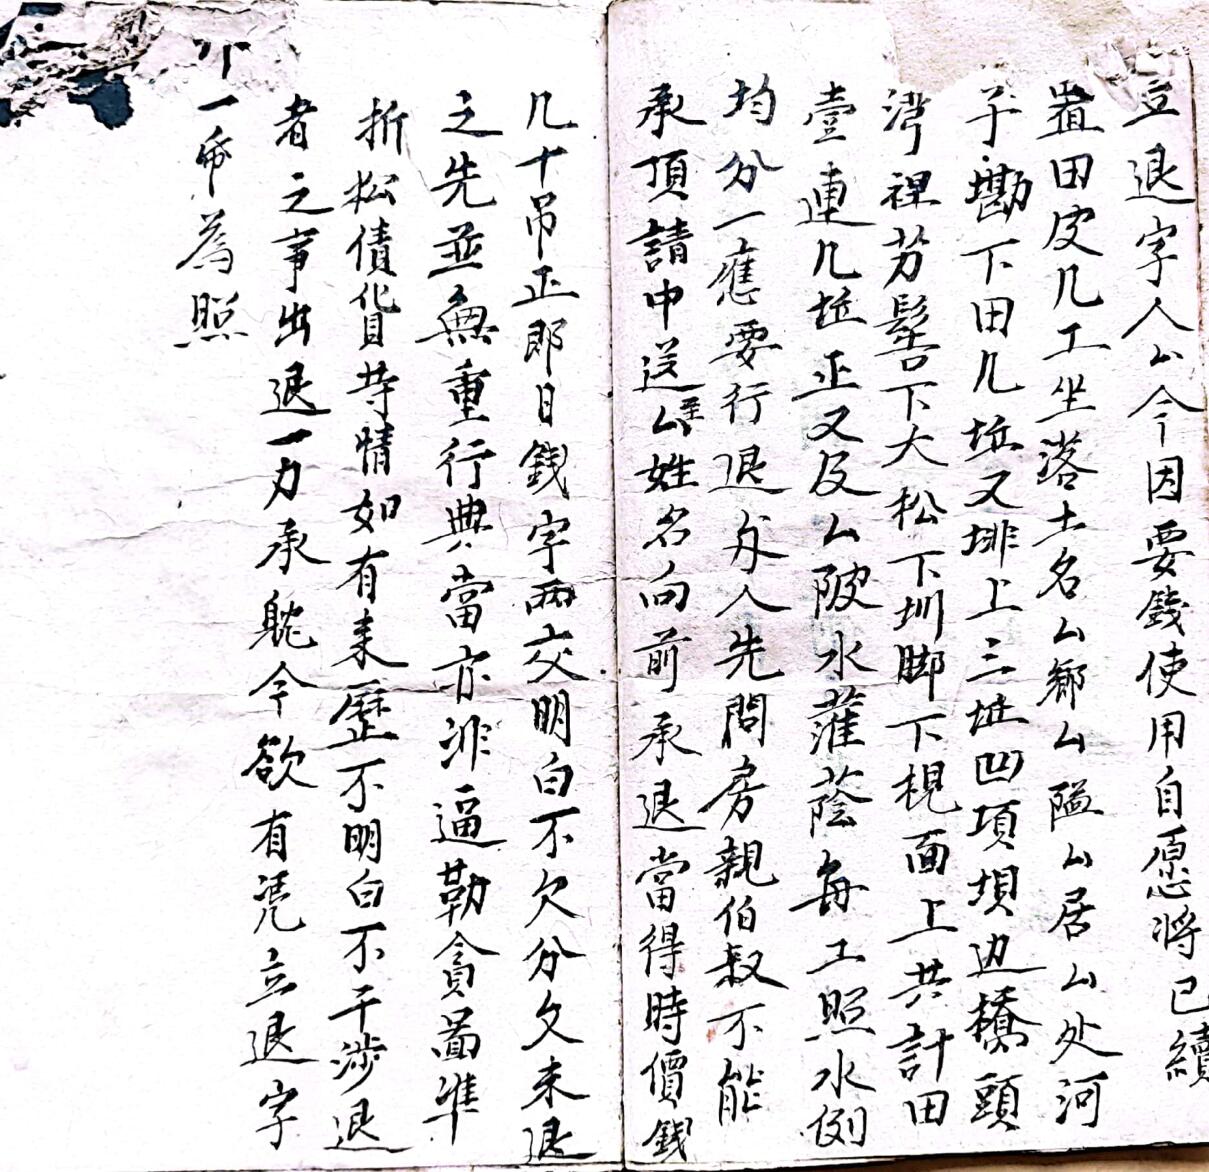 立退字人厶今因要錢使用自愿將已續
置田皮几工坐落土名厶鄉厶隘厶居厶处河
子墈下田几坵又排上三坵凹項垻边橋頭
湾裡芳髻下大松下圳脚下梘面上共計田
壹連几坵正又及厶陂水蓷蔭每工照水例
均分一應要行退与人先問房親伯叔不能
承頂請中送至厶姓名向前承退當得時價錢
几十吊正即日錢字兩交明白不欠分文未退
之先並無重行典當亦非逼勒貪啚準
折松債貨等情如有来歷不明白不干涉退
者之事出退一力承躭今欲有凭立退字
一帋為照